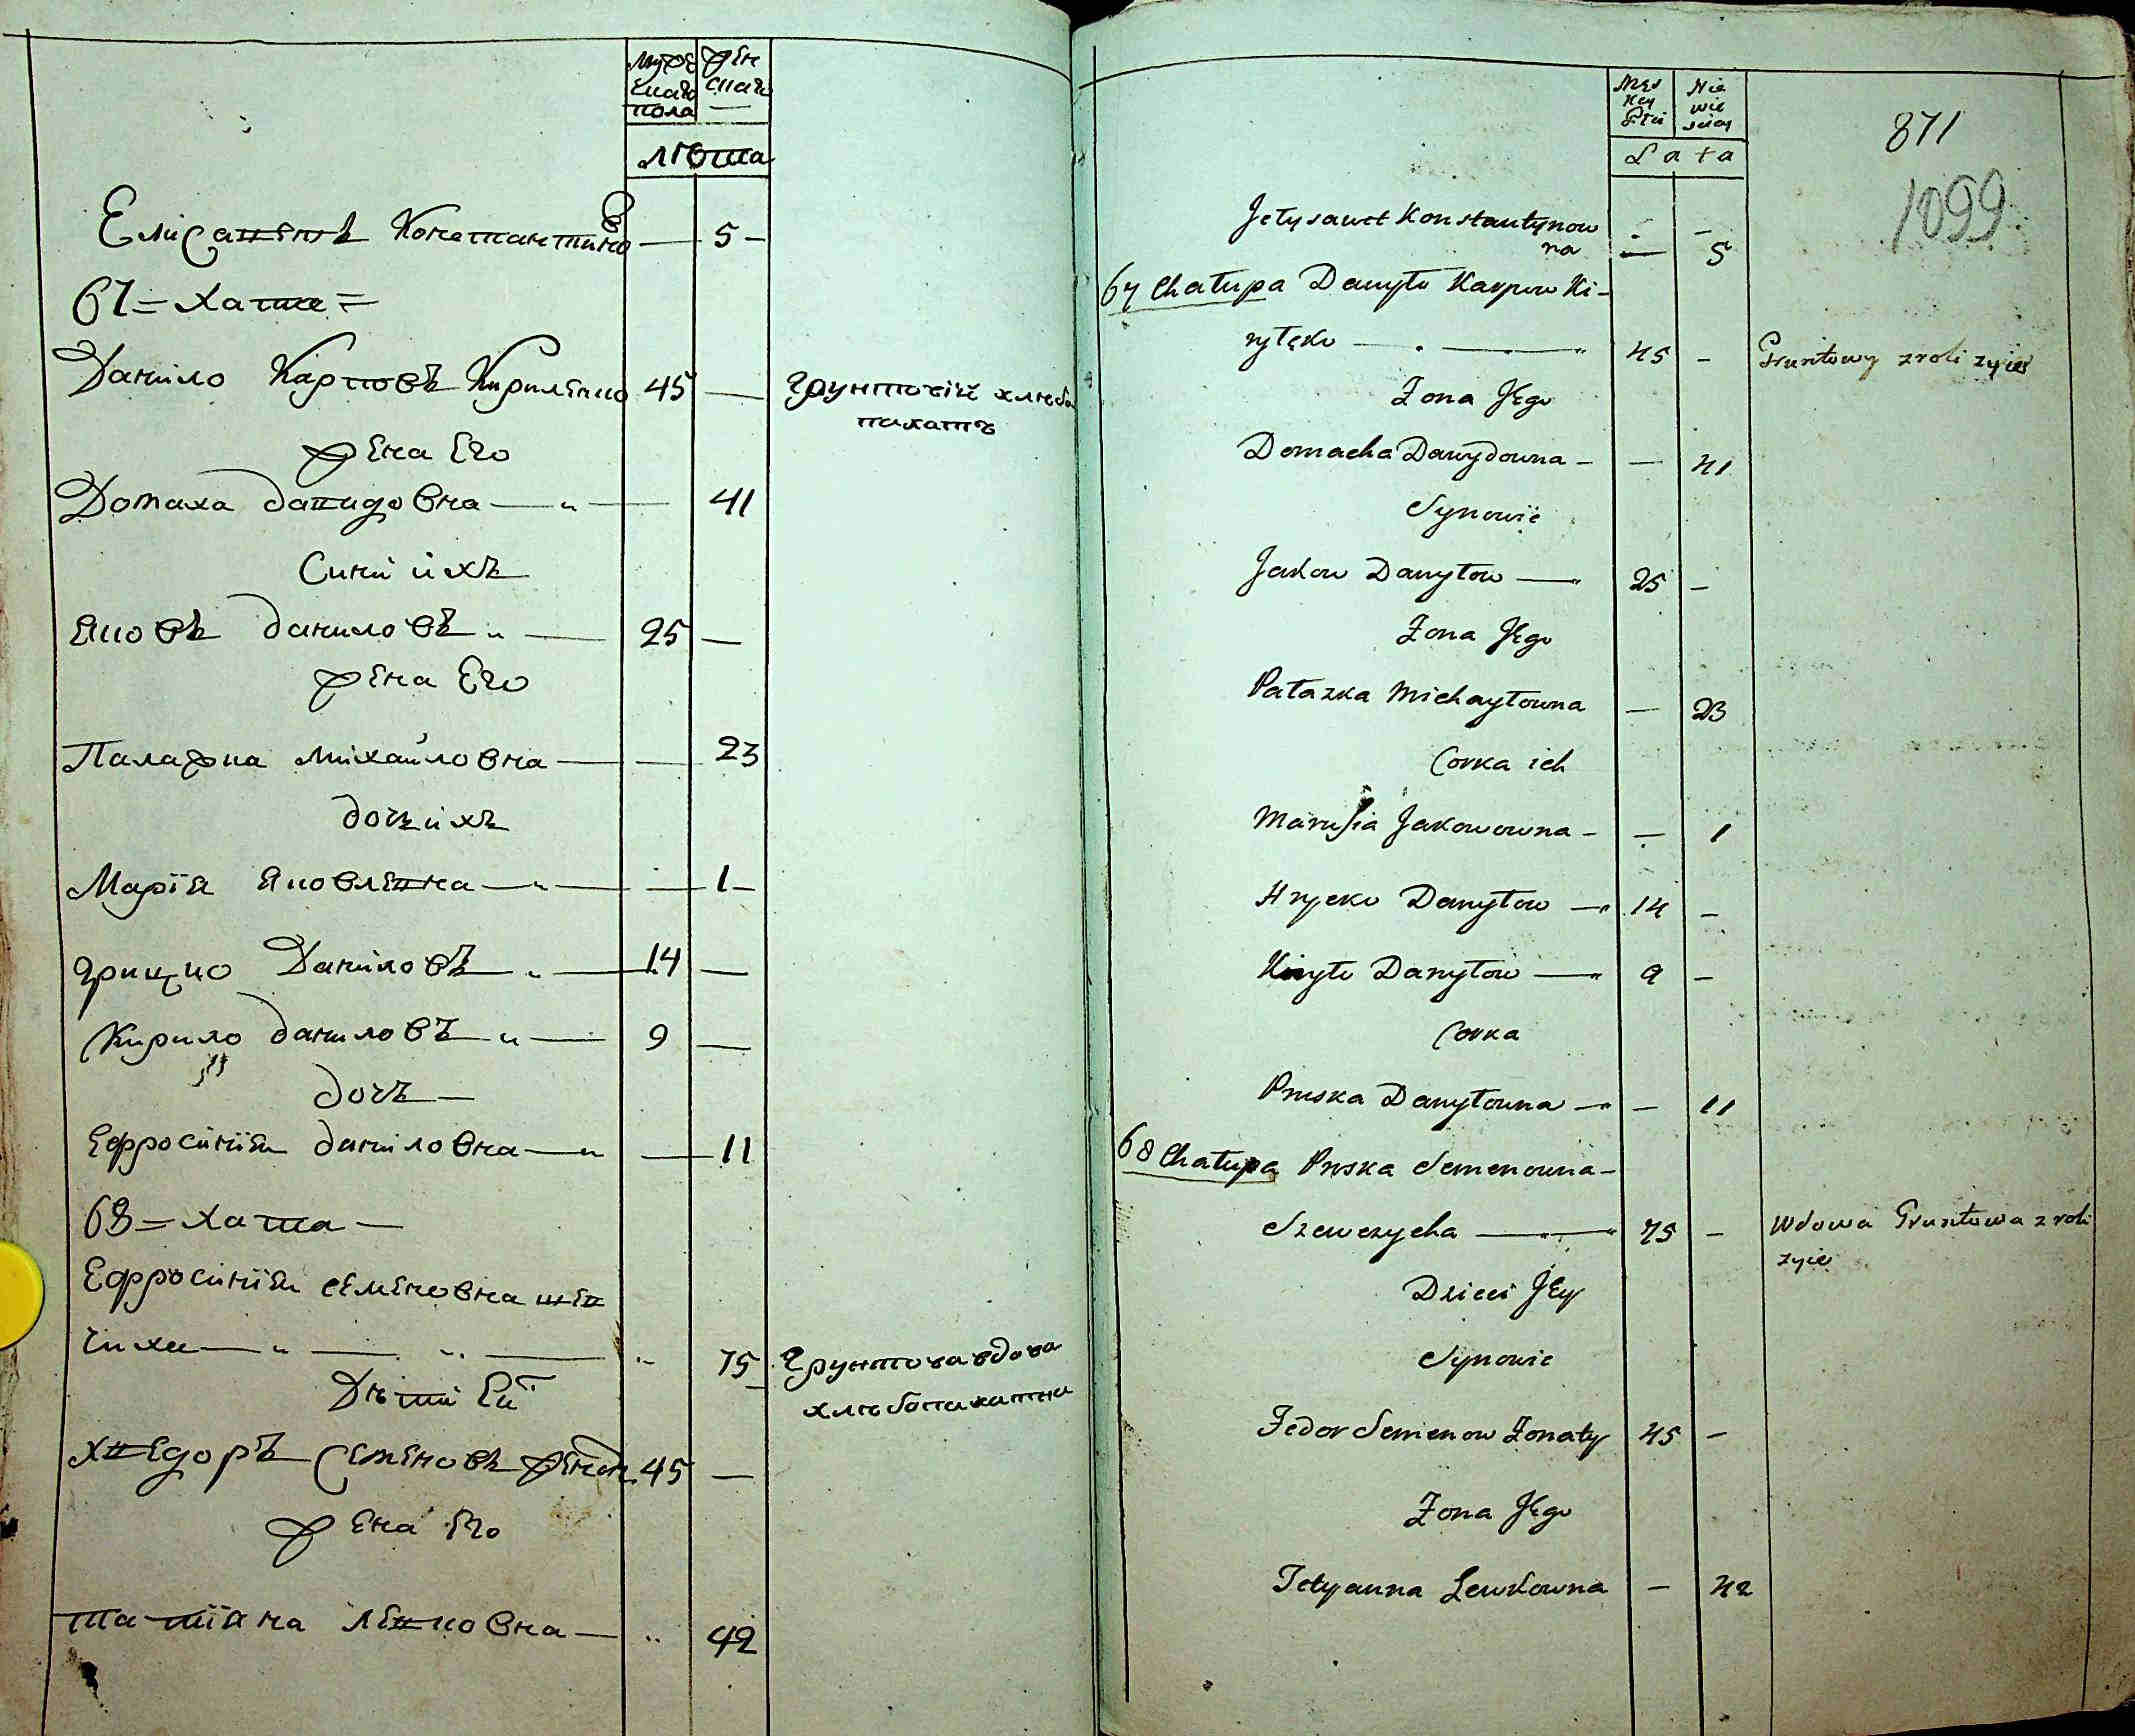 мужескаго пола женскаго
лѣта
Елисаветъ Константинова — 5 —
67 = хата =
Данило Карповъ Кириленко 45 — грунтовій хлѣбо
пахатъ
жена Его
Домаха давидовна — 41
Сини ихъ
Яковъ даниловъ — 25 —
жена Его
Палажка михайловна — 23
дочь ихъ
Марія Яковлевна — 1 —
грицко Даниловъ — 14 —
Кирило даниловъ — 9 —
дочь —
Ефросинія даниловна — 11
68 = хата —
Ефросинія семеновна шев
чиха — 75 грунтова вдова
хлѣбопахатна
Дѣти Ей
хведоръ Семеновъ женатъ 45 —
жена Его
татіяна левковна — 42
Męs
key
Płci
Nie
wie
sciey
Lata
871
1099
Jełysawet Konstantynow
na — 5
67 Chałupa Danyło Karpow Ki-
ryłęko — 45 — Gruntowy z roli zyie
Zona Jego
Domacha Dawydowna — — 41
Synowie
Jakow Danyłow — 25 —
Zona Jego
Pałazka Michayłowna — 23
Corka ich
Marusia Jakowowna — — 1
Hrycko Danyłow — 14 —
Kiryło Danyłow — 9 —
Corka
Pruska Danyłowna — — 11
68 Chałupa Pruska Semenowna —
Szewczycha — 75 — Wdowa Gruntowa z roli
zyie
Dzieci Jey
Synowie
Fedor Semenow Zonaty 45 —
Zona Jego
Tetyanna Lewkowna — 42